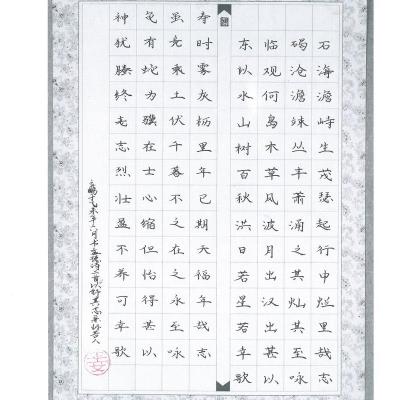 东临碣石
以观沧海
水何澹澹
山岛竦峙
树木丛生
百草丰茂
秋风萧瑟
洪波涌起
日月之行
若出其中
星汉灿烂
若出其里
幸甚至哉
歌以咏志
神龟虽寿
犹有竟时
腾蛇乘雾
终为土灰
老骥伏枥
志在千里
烈士暮年
壮心不已
盈缩之期
不但在天
养怡之福
可得永年
幸甚至哉
歌以咏志